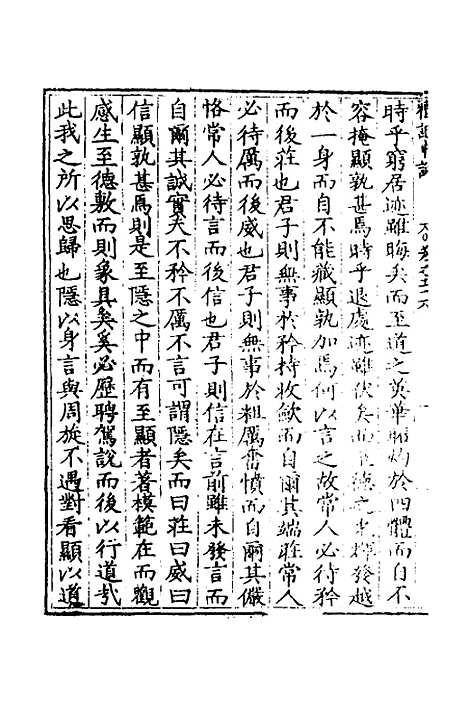 禮記中說
卷之三十六
時乎窮居迹雖晦矣而至道之英華昭灼於四體而自不
容掩顯孰甚焉時乎退處迹雖伏矣而至德之光輝發越
於一身而自不能藏顯孰加焉何以言之故常人必待矜
而後莊也君子則無事於矜持收斂而自爾其端莊常人
必待厲而後威也君子則無事於粗厲奮憤而自爾其儼
恪常人必待言而後信也君子則信在言前雖未發言而
自爾其誠實矣不矜不厲不言可謂隱矣而曰莊曰威曰
信顯孰甚焉則是至隱之中而有至顯者著模範在而觀
感生至德敷而則象具矣奚必歷聘駕說而後以行道哉
此我之所以思歸也隱以身言與周旋不遇對看顯以道